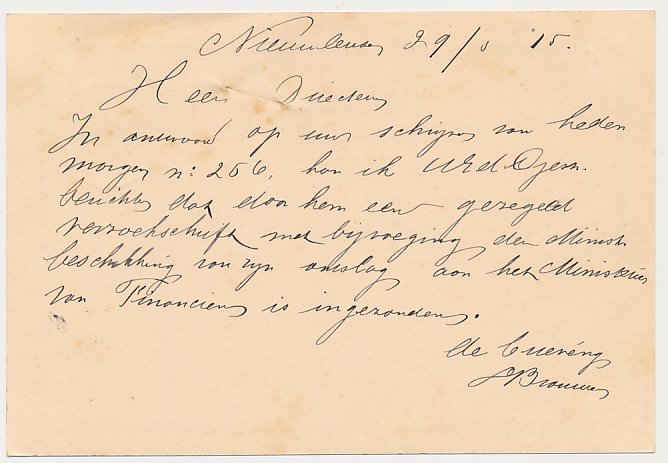 Nieuwleusen 29/8 '15.
Heer Directeur
In antwoord op uw schrijven van heden
morgen n: 256, kan ik UEd.
berichten dat door hem een gezegeld
verzoekschrift met bijvoeging der Minist.
beschikking van zijn omslag aan het Ministerie
van Financien is ingezonden.
de
Brouwer